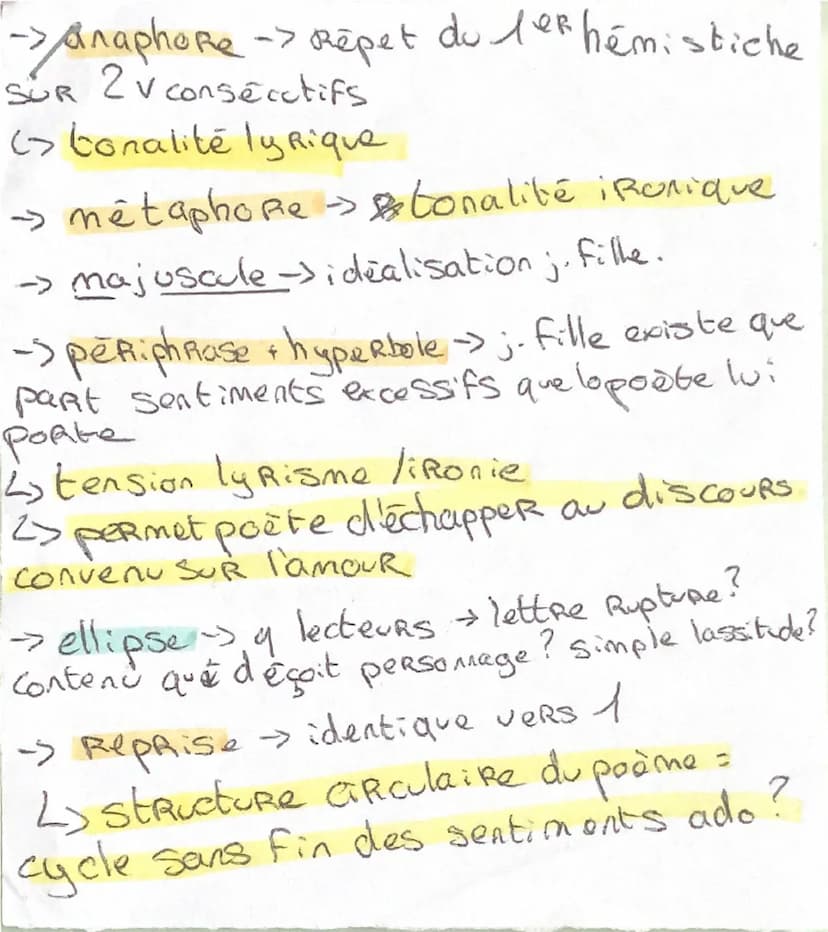 -> anaphore -> Répet du 1er hémistiche
sur 2 v consécutifs
↳ tonalité lyrique
-> métaphore -> tonalité ironique
-> majuscule -> idéalisation j. fille.
-> périphrase + hyperbole -> j. fille existe que
part sentiments excessifs que le poète lui
porte
↳ tension lyrisme / ironie
↳ permet poète d'échapper au discours
convenu sur l'amour
-> ellipse -> lecteurs -> lettre rupture?
contenu qui déçoit personnage? simple lassitude?
-> Reprise -> identique vers 1
↳ structure circulaire du poème =
cycle sans fin des sentiments ado?